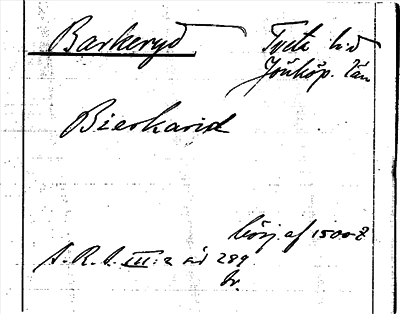 Barkeryd Tveta hd
Jönköp. län
Bierkarid
börj. af 1500-t.
S.R.S. III:2 sid 289
br.